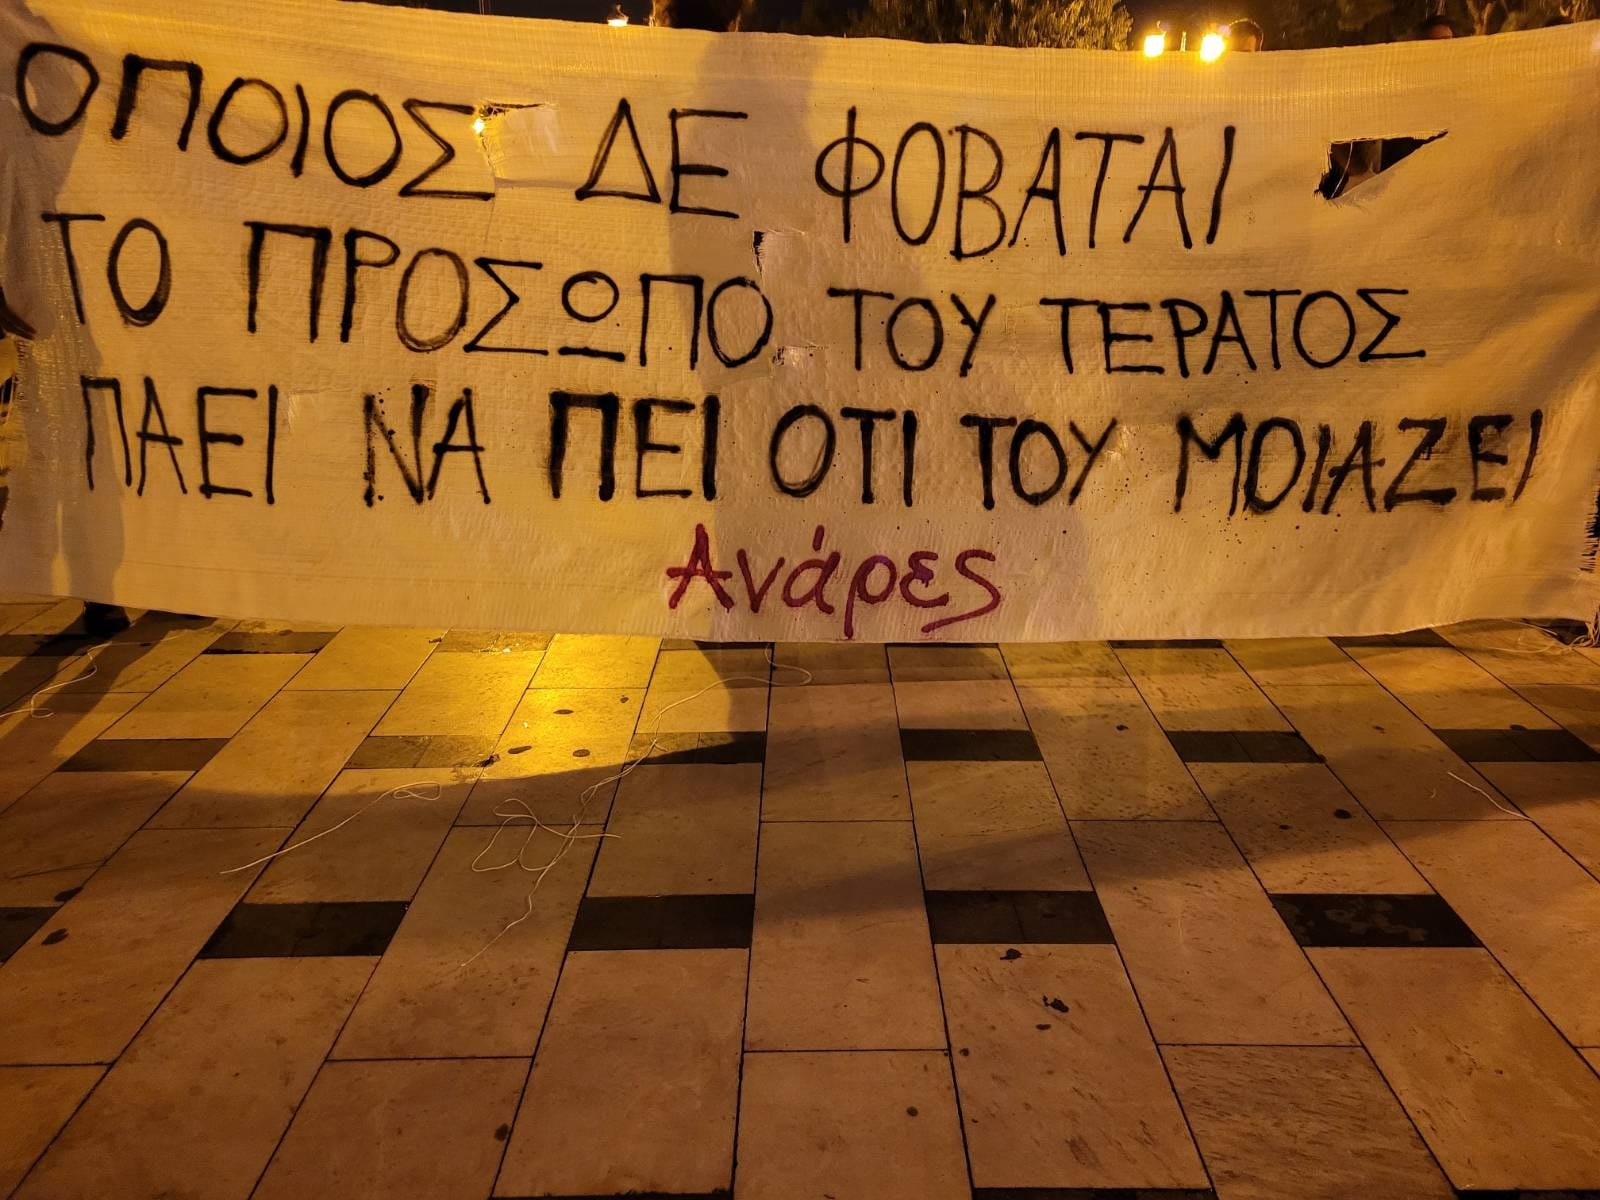 ΟΠΟΙΟΣ ΔΕ ΦΟΒΑΤΑΙ
ΤΟ ΠΡΟΣΩΠΟ ΤΟΥ ΤΕΡΑΤΟΣ
ΠΑΕΙ ΝΑ ΠΕΙ ΟΤΙ ΤΟΥ ΜΟΙΑΖΕΙ
Ανάρες